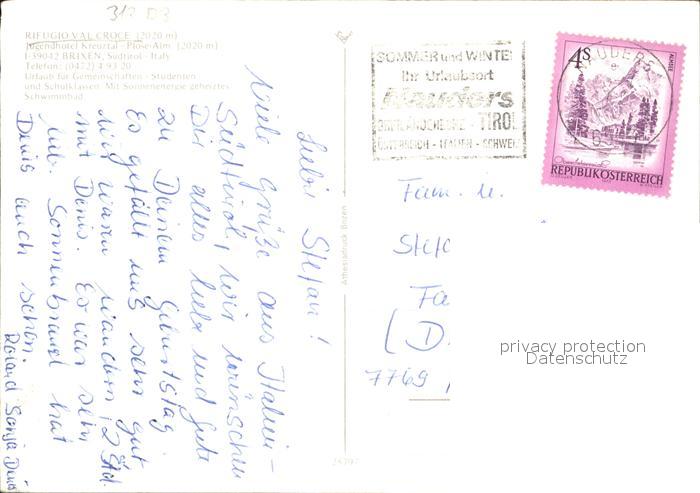 312 D3
RIFUGIO VAL CROCE (2020 m)
Jugendhotel Kreuztal - Plose-Alm (2020 m)
I-39042 BRIXEN, Südtirol - Italy
Telefon: (0472) 4 93 20
Urlaub für Gemeinschaften - Studenten
und Schulklassen. Mit Sonnenenergie geheiztes
Schwimmbad.
Liebe Stefan!
Viele Grüße aus Italien -
Südtirol, wir wünschen
Dir alles liebe und gute
zu Deinem Geburtstag
Es gefällt uns sehr gut
wir waren wandern, 2 Std.
mit Denis. Es war sehr
Sonnenbrand hat
Denis auch schon.
Roland Sonja Denis
Athesiadruck Brixen
SOMMER und WINTER
Ihr Urlaubsort
Nauders
TIROL
ÖSTERREICH - ITALIEN - SCHWEIZ
NAUDERS
4S
REPUBLIK ÖSTERREICH
Fam. u.
Stef
Fa
(D.
7769
privacy protection
Datenschutz